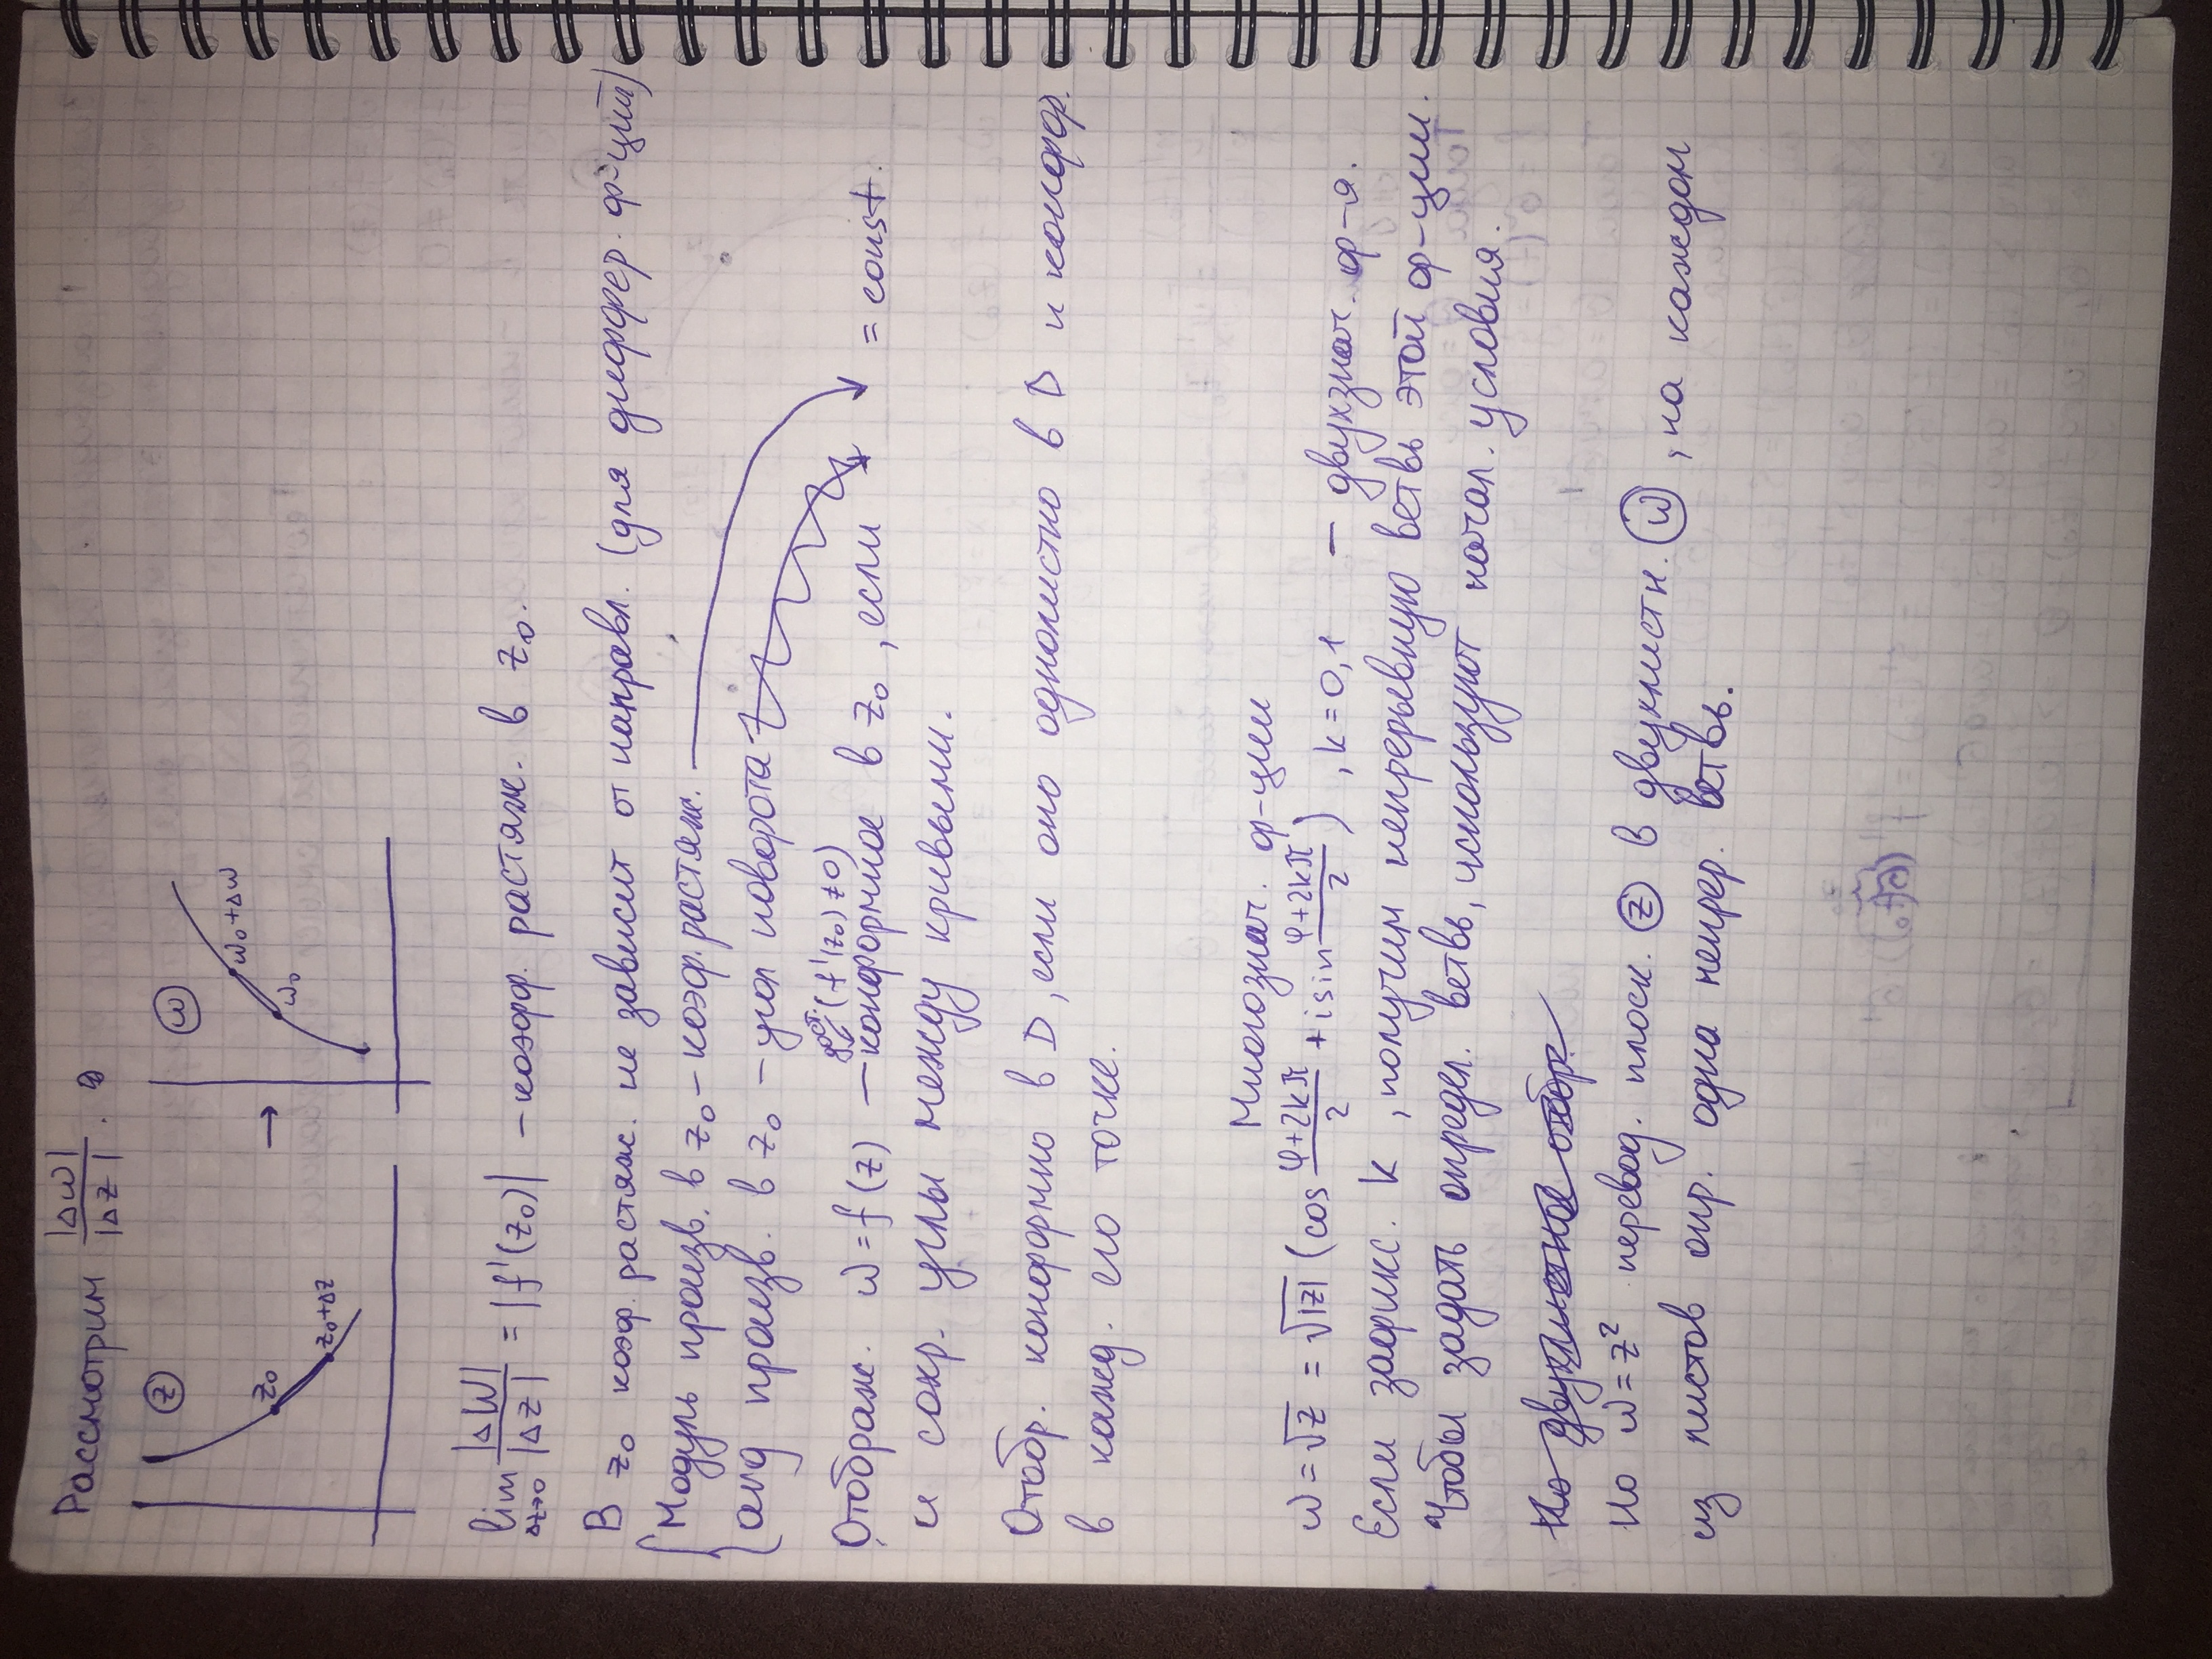 Рассмотрим |Δω|/|Δz|.
z
ω
z₀
z₀+Δz
→
ω₀+Δω
ω₀
lim Δz→0 |ΔW|/|Δz| = |f'(z₀)| – коэфф. растяж. в z₀.
В z₀ коэф. растяж. не зависит от направл. (для диффер. ф-ций)
Модуль произв. в z₀ – коэф. растяж.
arg произв. в z₀ – угол поворота
дост. (f'(z₀) ≠ 0)
Отображ. ω = f(z) – конформное в z₀, если = const.
и сохр. углы между кривыми.
Отобр. конформно в D, если оно однолистно в D и конфор.
в кажд. его точке.
Многознач. ф-ции
ω = √z = √|z| (cos (φ+2kπ)/2 + i sin (φ+2kπ)/2), k = 0,1 – двухзнач. ф-я.
Если зафикс. k, получим непрерывную ветвь этой ф-ции.
Чтобы задать определ. ветвь, используют начал. условия.
Но двухлистное отобр.
Но ω = z² перевод. плоск. z в двухлистн. ω, на каждом
из листов опр. одна непрер. ветвь.